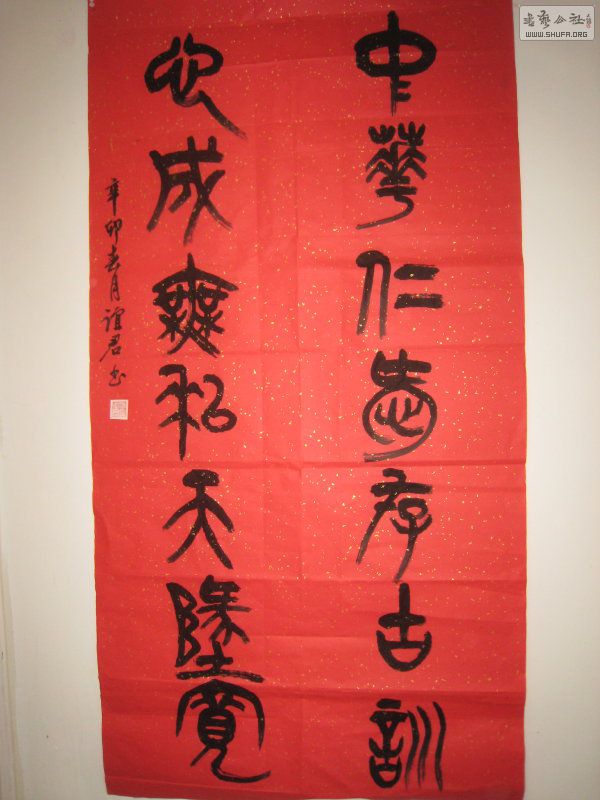 中華仁志存古訓
心成無私天墬寬
辛卯春月谊君书
書藝公社
WWW.SHUFA.ORG